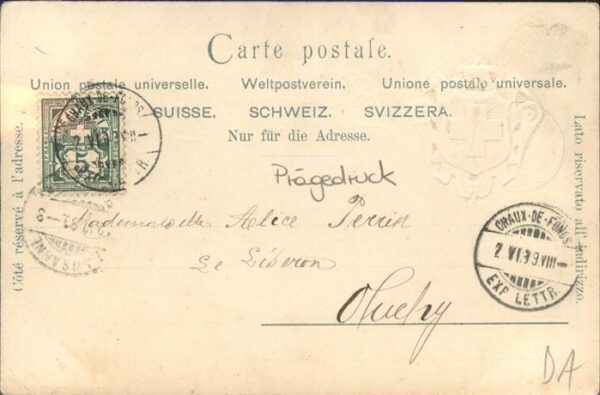 Carte postale.
Union postale universelle. Weltpostverein. Unione postale universale.
SUISSE. SCHWEIZ. SVIZZERA.
Nur für die Adresse.
Côté réservé à l'adresse.
Lato riservato all' indirizzo.
Prägedruck
Mademoiselle Alice Perrin
Le Liseron
Ouchy
CHAUX-DE-FONDS
2 VI.99 VIII—
EXP. LETTR.
DA